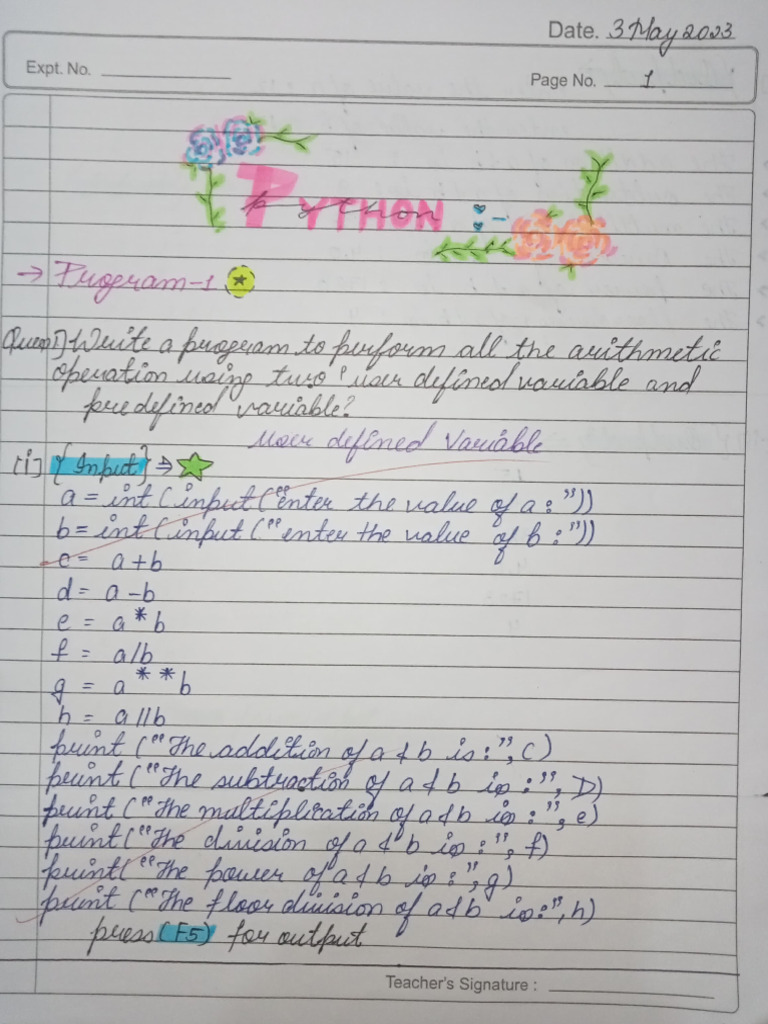 Date. 3 May 2023
Expt. No.
Page No. 1
PYTHON :-
python
→ Program-1
Ques1] Write a program to perform all the arithmetic
operation using two user defined variable and
predefined variable?
User defined Variable
[i] {Input} ⇒
a = int (input (“enter the value of a : ”))
b = int (input (“enter the value of b : ”))
c = a + b
d = a - b
e = a * b
f = a/b
g = a * * b
h = a // b
print (“The addition of a & b is : ”, C)
print (“The subtraction of a & b is : ”, D)
print (“The multiplication of a & b is : ”, e)
print (“The division of a & b is : ”, f)
print (“The power of a & b is : ”, g)
print (“The floor division of a & b is : ”, h)
press (F5) for output
Teacher's Signature :